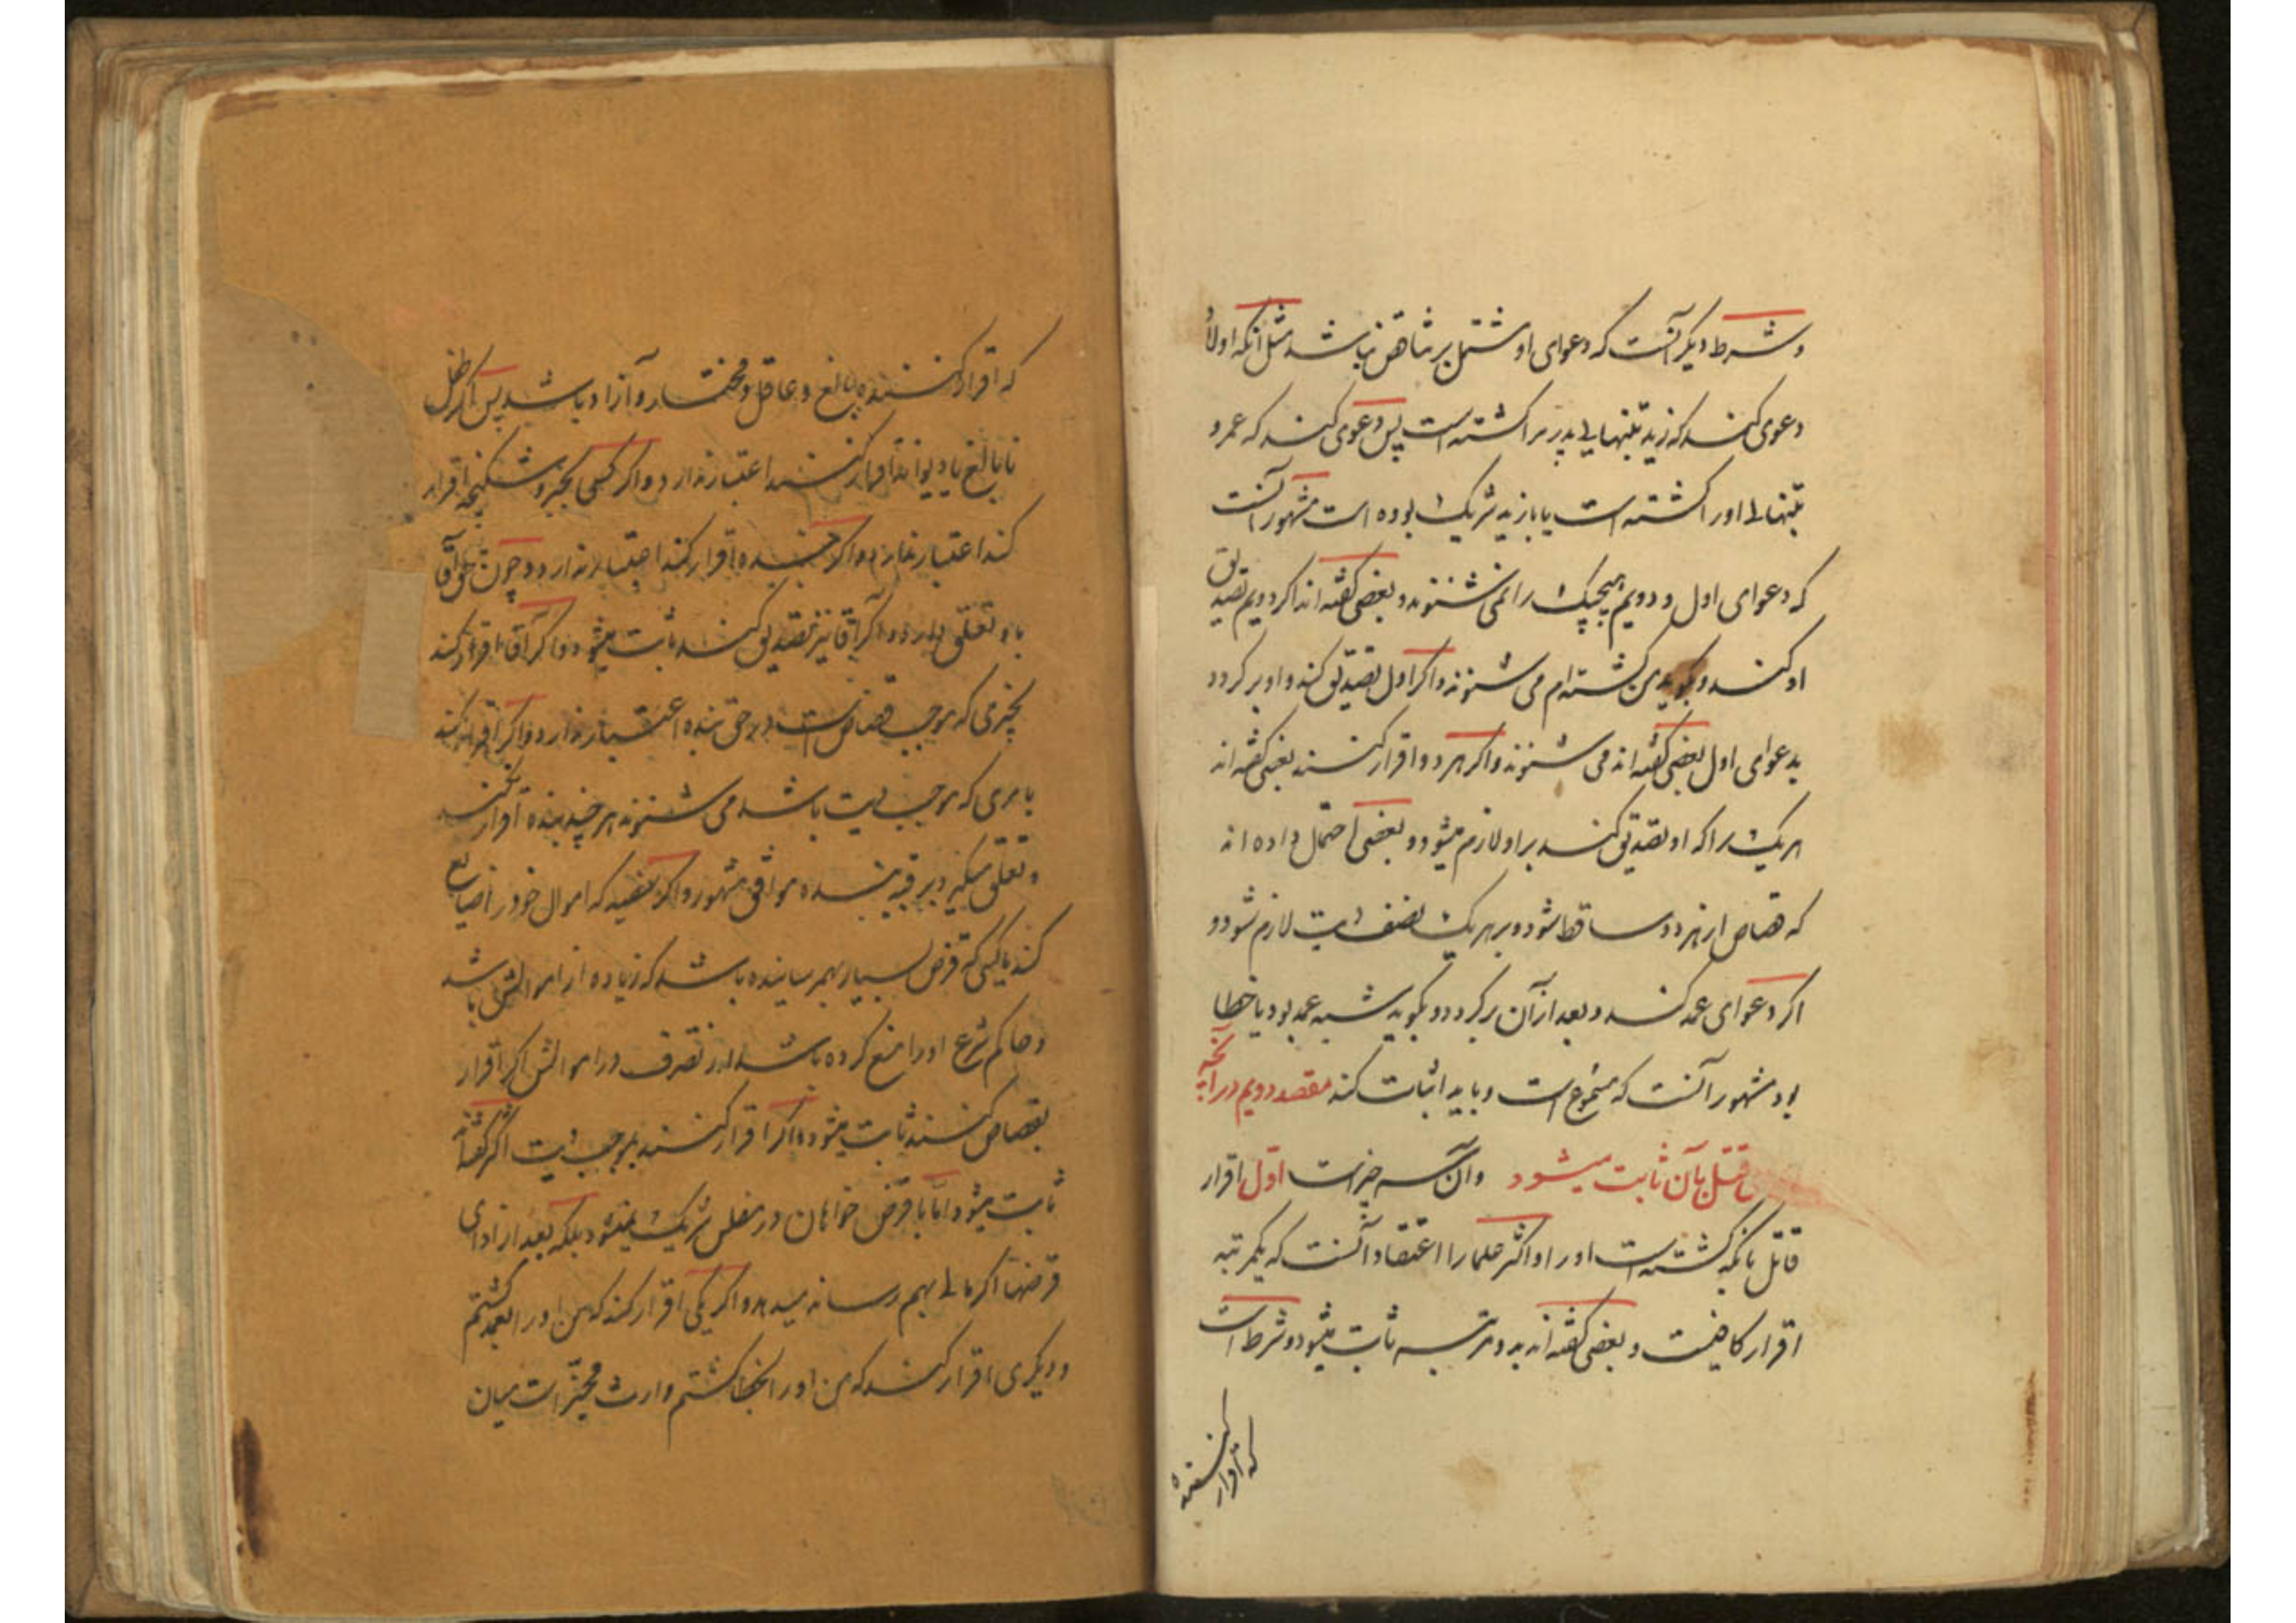 و شرط دیگر آنست که دعوای او مشتمل بر تناقض نباشد مثل آنکه اولاً
دعوی کند که زید بتنهایی پدر مرا کشته است پس دعوی کند که عمرو
بتنهائی او را کشته است یا با زید شریک بوده است مشهور آنست
که دعوای اول و دویم هیچیک را نمی شنوند و بعضی گفته اند اگر دویم تصدیق
او کند و بگوید من کشته ام می شنوند و اگر اول تصدیق کند و او برگردد
بدعوای اول بعضی گفته اند می شنوند و اگر هر دو اقرار کنند بعضی گفته اند
هر یک را که او تصدیق کند بر او لازم میشود و بعضی احتمال داده اند
که قصاص از هر دو ساقط شود و بر هر یک نصف دیت لازم شود و
اگر دعوای عمد کند و بعد از آن برگردد و بگوید شبیه عمد بود یا خطا
بود مشهور آنست که مسموع است و باید اثبات کند مقصد دویم در آنچه
قتل بآن ثابت میشود و آن سه چیز است اوّل اقرار
قاتل بآنکه کشته است او را و اکثر علما را اعتقاد آنست که یکمرتبه
اقرار کافیست و بعضی گفته اند بدو مرتبه ثابت میشود و شرط است
که اقرار کننده
که اقرار کننده بالغ و عاقل و مختار و آزاد باشد پس اگر طفل
نابالغ یا دیوانه اقرار کنند اعتبار ندارد و اگر کسی بجبر و شکنجه اقرار
کند اعتبار ندارد و اگر بنده اقرار کند اعتبار ندارد چون حق آقا
باو تعلق دارد و اگر آقا نیز تصدیق کند ثابت میشود و اگر آقا اقرار کند
بچیزی که موجب قصاص است در حق بنده اعتبار ندارد و اگر اقرار کند
بامری که موجب دیت باشد می شنوند هر چند بنده اقرار نکند
و تعلق میگیرد برقبه بنده موافق مشهور و اگر سفیه که اموال خود را ضایع
کند یا کسی که قرض بسیار بهمرسانیده باشد که زیاده از اموالش باشد
و حاکم شرع او را منع کرده باشد از تصرف در اموالش اگر اقرار
بقصاص کنند ثابت میشود و اگر اقرار کنند بموجب دیت اکثر گفته اند
ثابت میشود امّا با قرض خواهان در مفلس شریک نمیشود بلکه بعد از ادای
قرضها اگر مالی بهم رساند میدهد و اگر یکی اقرار کند که من او را بعمد کشتم
و دیگری اقرار کند که من او را بخطا کشتم وارث مخیّر است میان